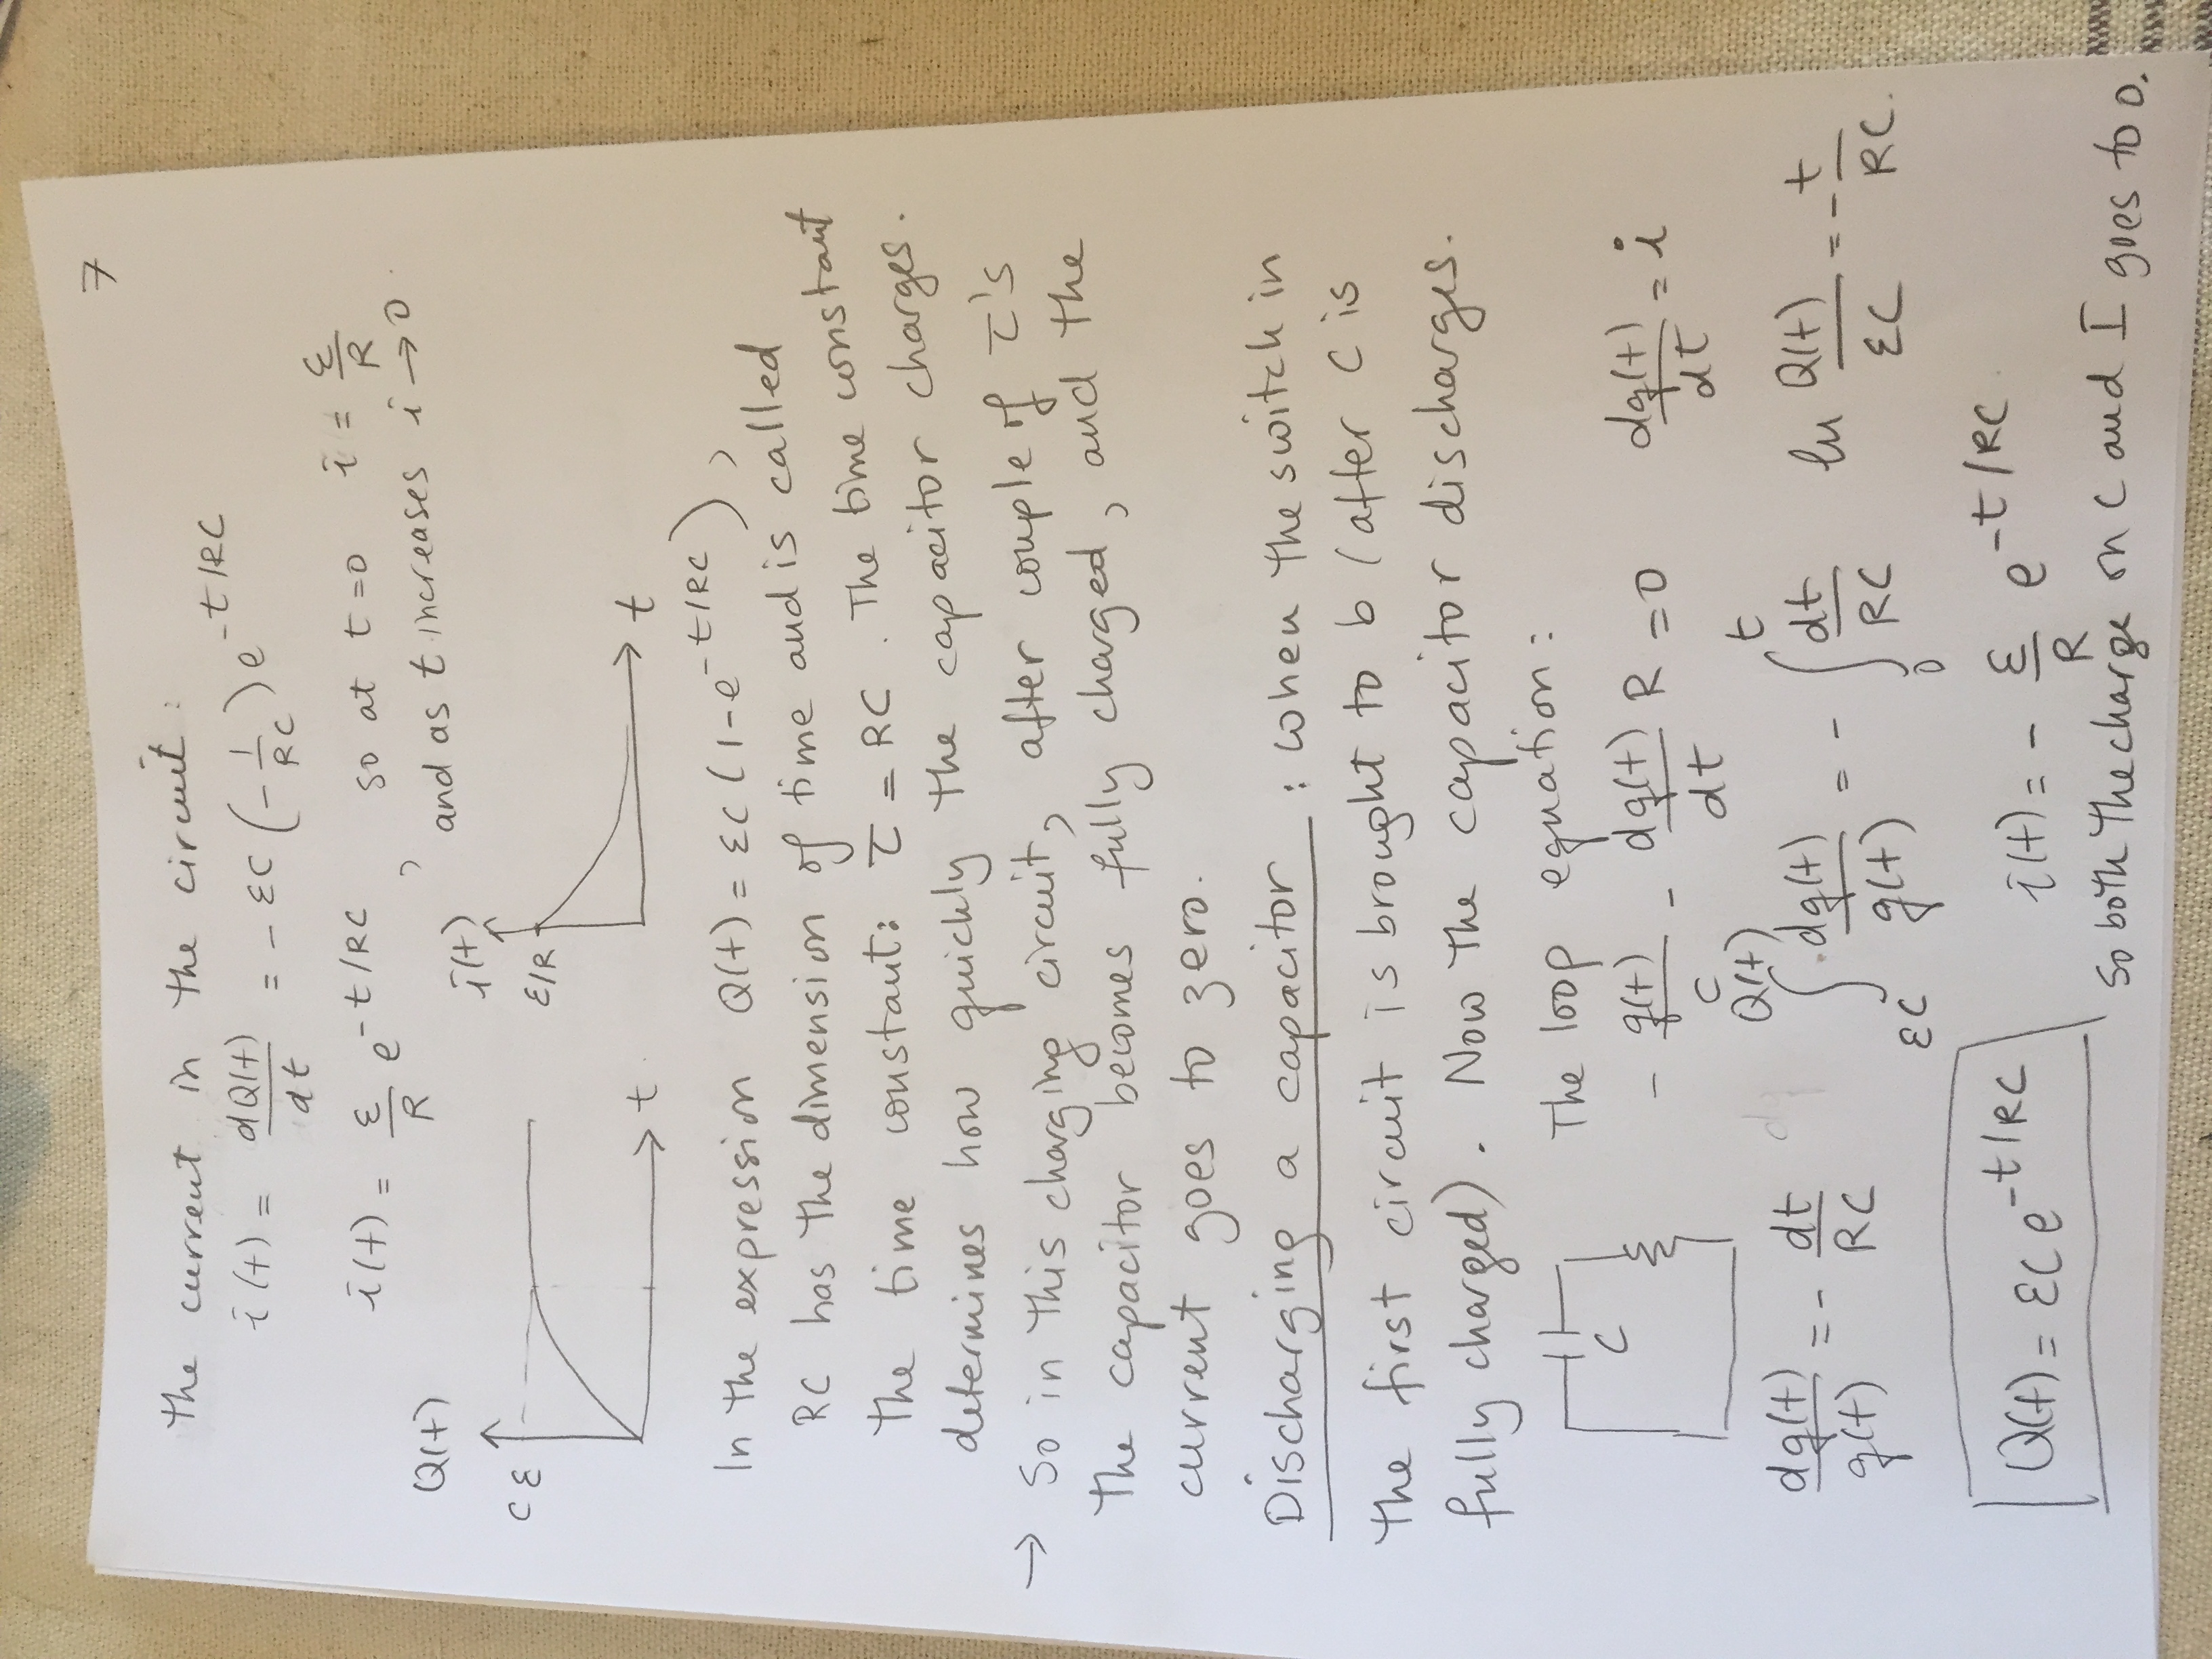 7
the current in the circuit:
i(t) = dQ(t)/dt = - εC (-1/RC) e^-t/RC
i(t) = ε/R e^-t/RC, so at t=0 i = ε/R
and as t increases i → 0.
Q(t) i(t)
Cε ε/R
t t
In the expression Q(t) = εC (1-e^-t/RC),
RC has the dimension of time and is called
the time constant: τ = RC. The time constant
determines how quickly the capacitor charges.
→ So in this charging circuit, after couple of τ's
the capacitor becomes fully charged, and the
current goes to zero.
Discharging a capacitor : when the switch in
the first circuit is brought to b (after C is
fully charged). Now the capacitor discharges.
The loop equation:
C
- q(t)/C - dq(t)/dt R = 0 dq(t)/dt = i
dq(t)/q(t) = - dt/RC ∫_εC^Q(t) dq(t)/q(t) = - ∫_0^t dt/RC ln Q(t)/εC = - t/RC.
Q(t) = εC e^-t/RC i(t) = - ε/R e^-t/RC.
So both the charge on C and I goes to 0.